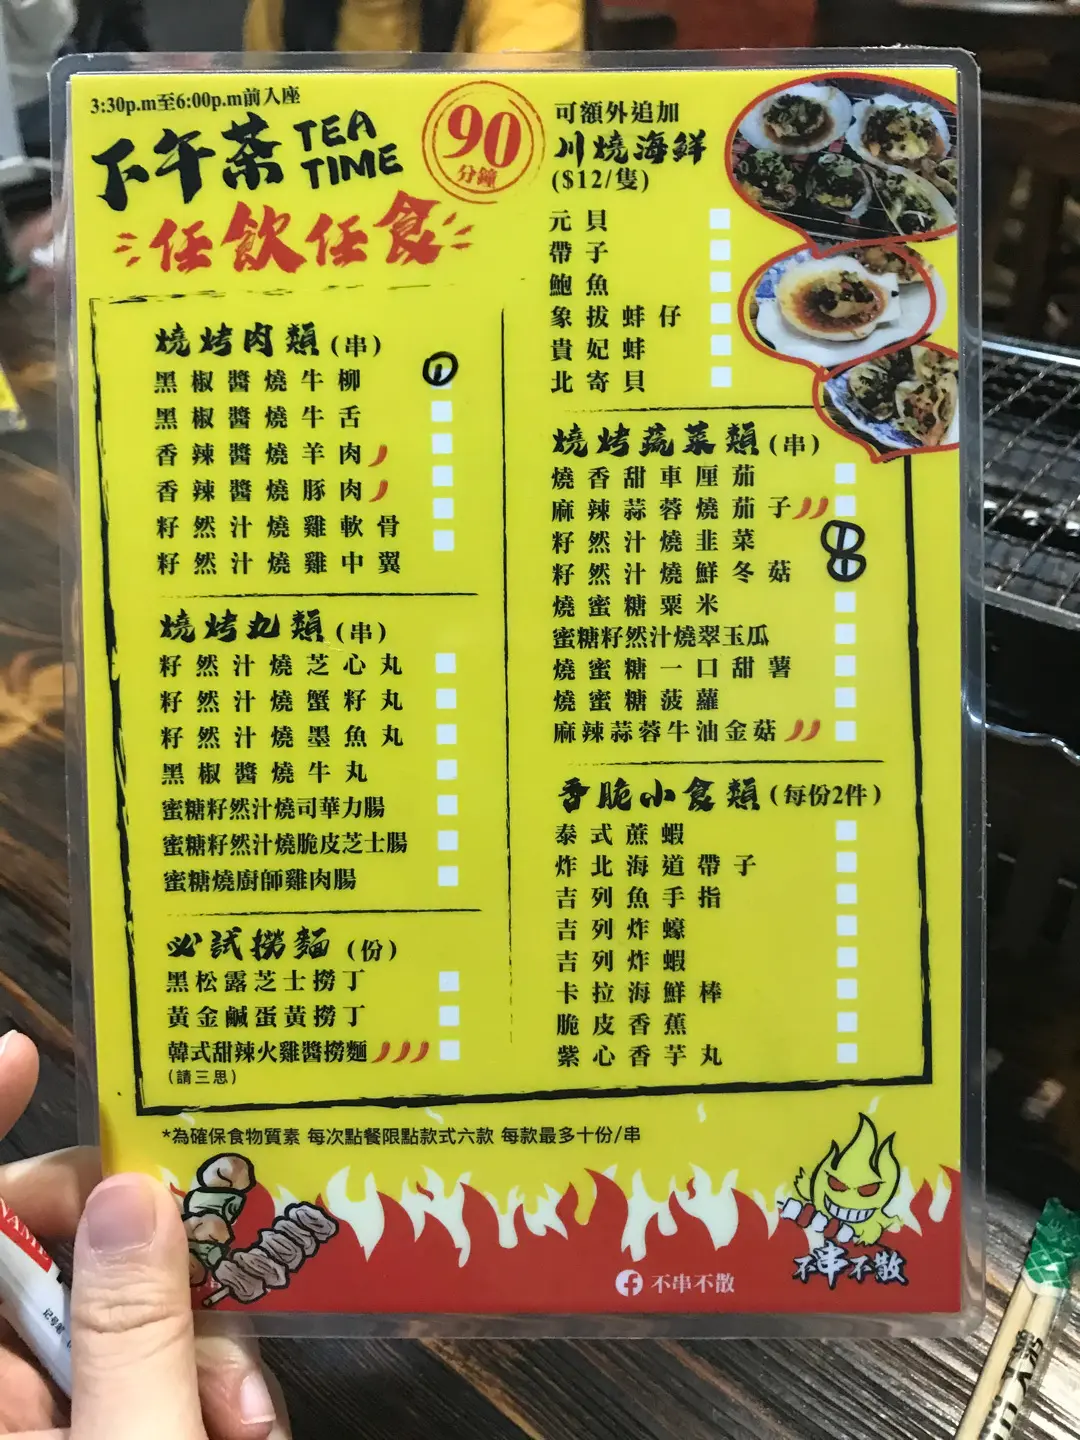 3:30p.m至6:00p.m前入座
下午茶 TEA TIME
90分鐘
任飲任食
燒烤肉類(串)
黑椒醬燒牛柳
黑椒醬燒牛舌
香辣醬燒羊肉
香辣醬燒豚肉
籽然汁燒雞軟骨
籽然汁燒雞中翼
燒烤丸類(串)
籽然汁燒芝心丸
籽然汁燒蟹籽丸
籽然汁燒墨魚丸
黑椒醬燒牛丸
蜜糖籽然汁燒司華力腸
蜜糖籽然汁燒脆皮芝士腸
蜜糖燒廚師雞肉腸
必試撈麵(份)
黑松露芝士撈丁
黃金鹹蛋黃撈丁
韓式甜辣火雞醬撈麵
(請三思)
可額外追加
川燒海鮮
($12/隻)
元貝
帶子
鮑魚
象拔蚌仔
貴妃蚌
北寄貝
燒烤蔬菜類(串)
燒香甜車厘茄
麻辣蒜蓉燒茄子
籽然汁燒韭菜
籽然汁燒鮮冬菇
燒蜜糖粟米
蜜糖籽然汁燒翠玉瓜
燒蜜糖一口甜薯
燒蜜糖菠蘿
麻辣蒜蓉牛油金菇
香脆小食類(每份2件)
泰式蔗蝦
炸北海道帶子
吉列魚手指
吉列炸蠔
吉列炸蝦
卡拉海鮮棒
脆皮香蕉
紫心香芋丸
*為確保食物質素 每次點餐限點款式六款 每款最多十份/串
不串不散
不串不散
NAME